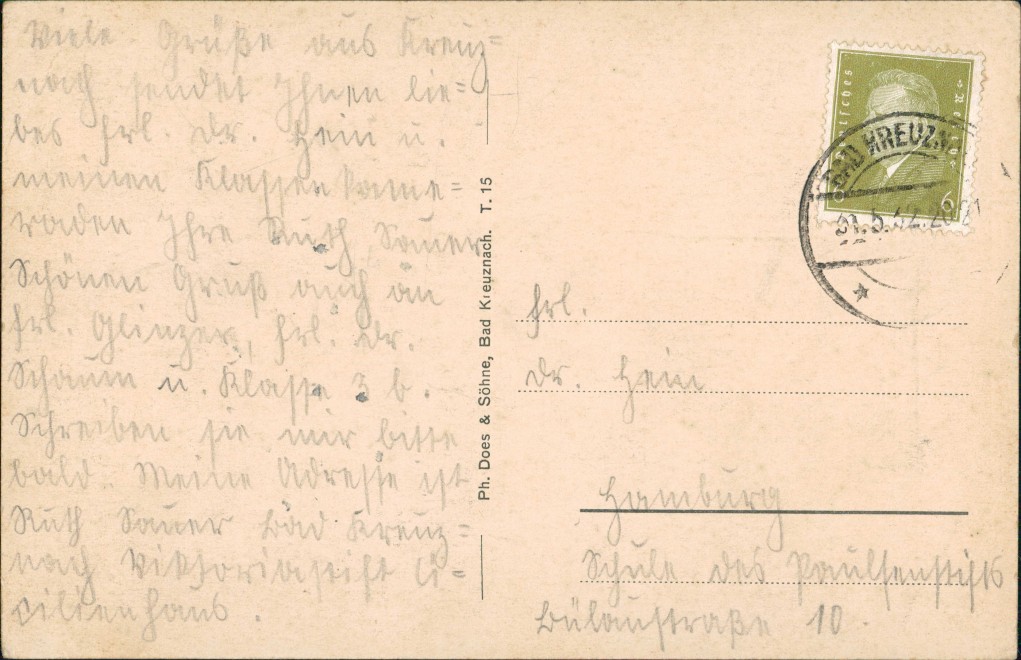 Viele Grüße aus Kreuz=
nach sendet Ihnen lie=
bes Frl. Dr. Hein u.
meinen Klassenkame=
raden Ihre Ruth Sauer
Schönen Gruß auch an
Frl. Glinzer, Frl. Dr.
Schaum u. Klasse 3 b.
Schreiben sie mir bitte
bald. Meine Adresse ist
Ruth Sauer Bad Kreuz=
nach Viktoriastift Cä=
cilienhaus.
Ph. Does & Söhne, Bad Kreuznach. T. 15
BAD KREUZN
6
Frl.
Dr. Hein
Hamburg
Schule des Paulsenstifts
Bülaustraße 10.